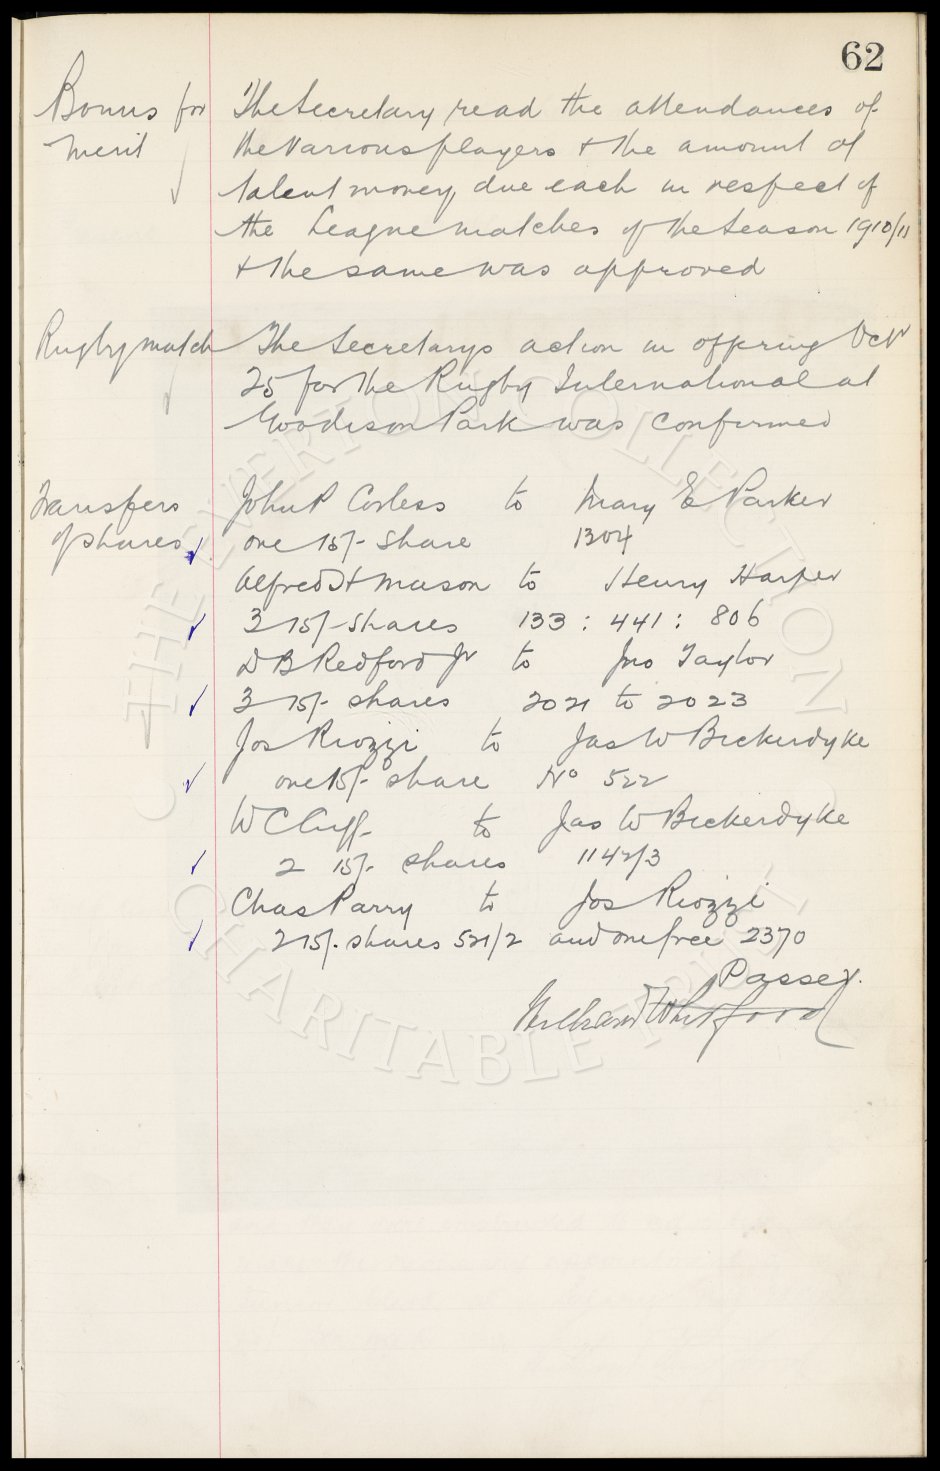 62
Bonus for The Secretary read the attendances of
Merit the various players & the amount of
talent money due each in respect of
the League matches of the Season 1910/11
& the same was approved
Rugby match The Secretarys action in offering Octr
25 for the Rugby International at
Goodison Park was confirmed
Transfers John P Corless to Mary E Parker
of shares one 15/- share 1304
Alfred H Mason to Henry Harper
3 15/- shares 133 : 441 : 806
D B Redford Jr to Jno Taylor
3 15/- shares 2021 to 2023
Jos Riozzi to Jas W Bickerdyke
one 15/- share No 522
W C Cuff to Jas W Bickerdyke
2 15/- shares 1142/3
Chas Parry to Jos Riozzi
2 15/- shares 521/2 and one free 2370
Passed.
Whitford
THE EVERTON COLLECTION
CHARITABLE TRUST